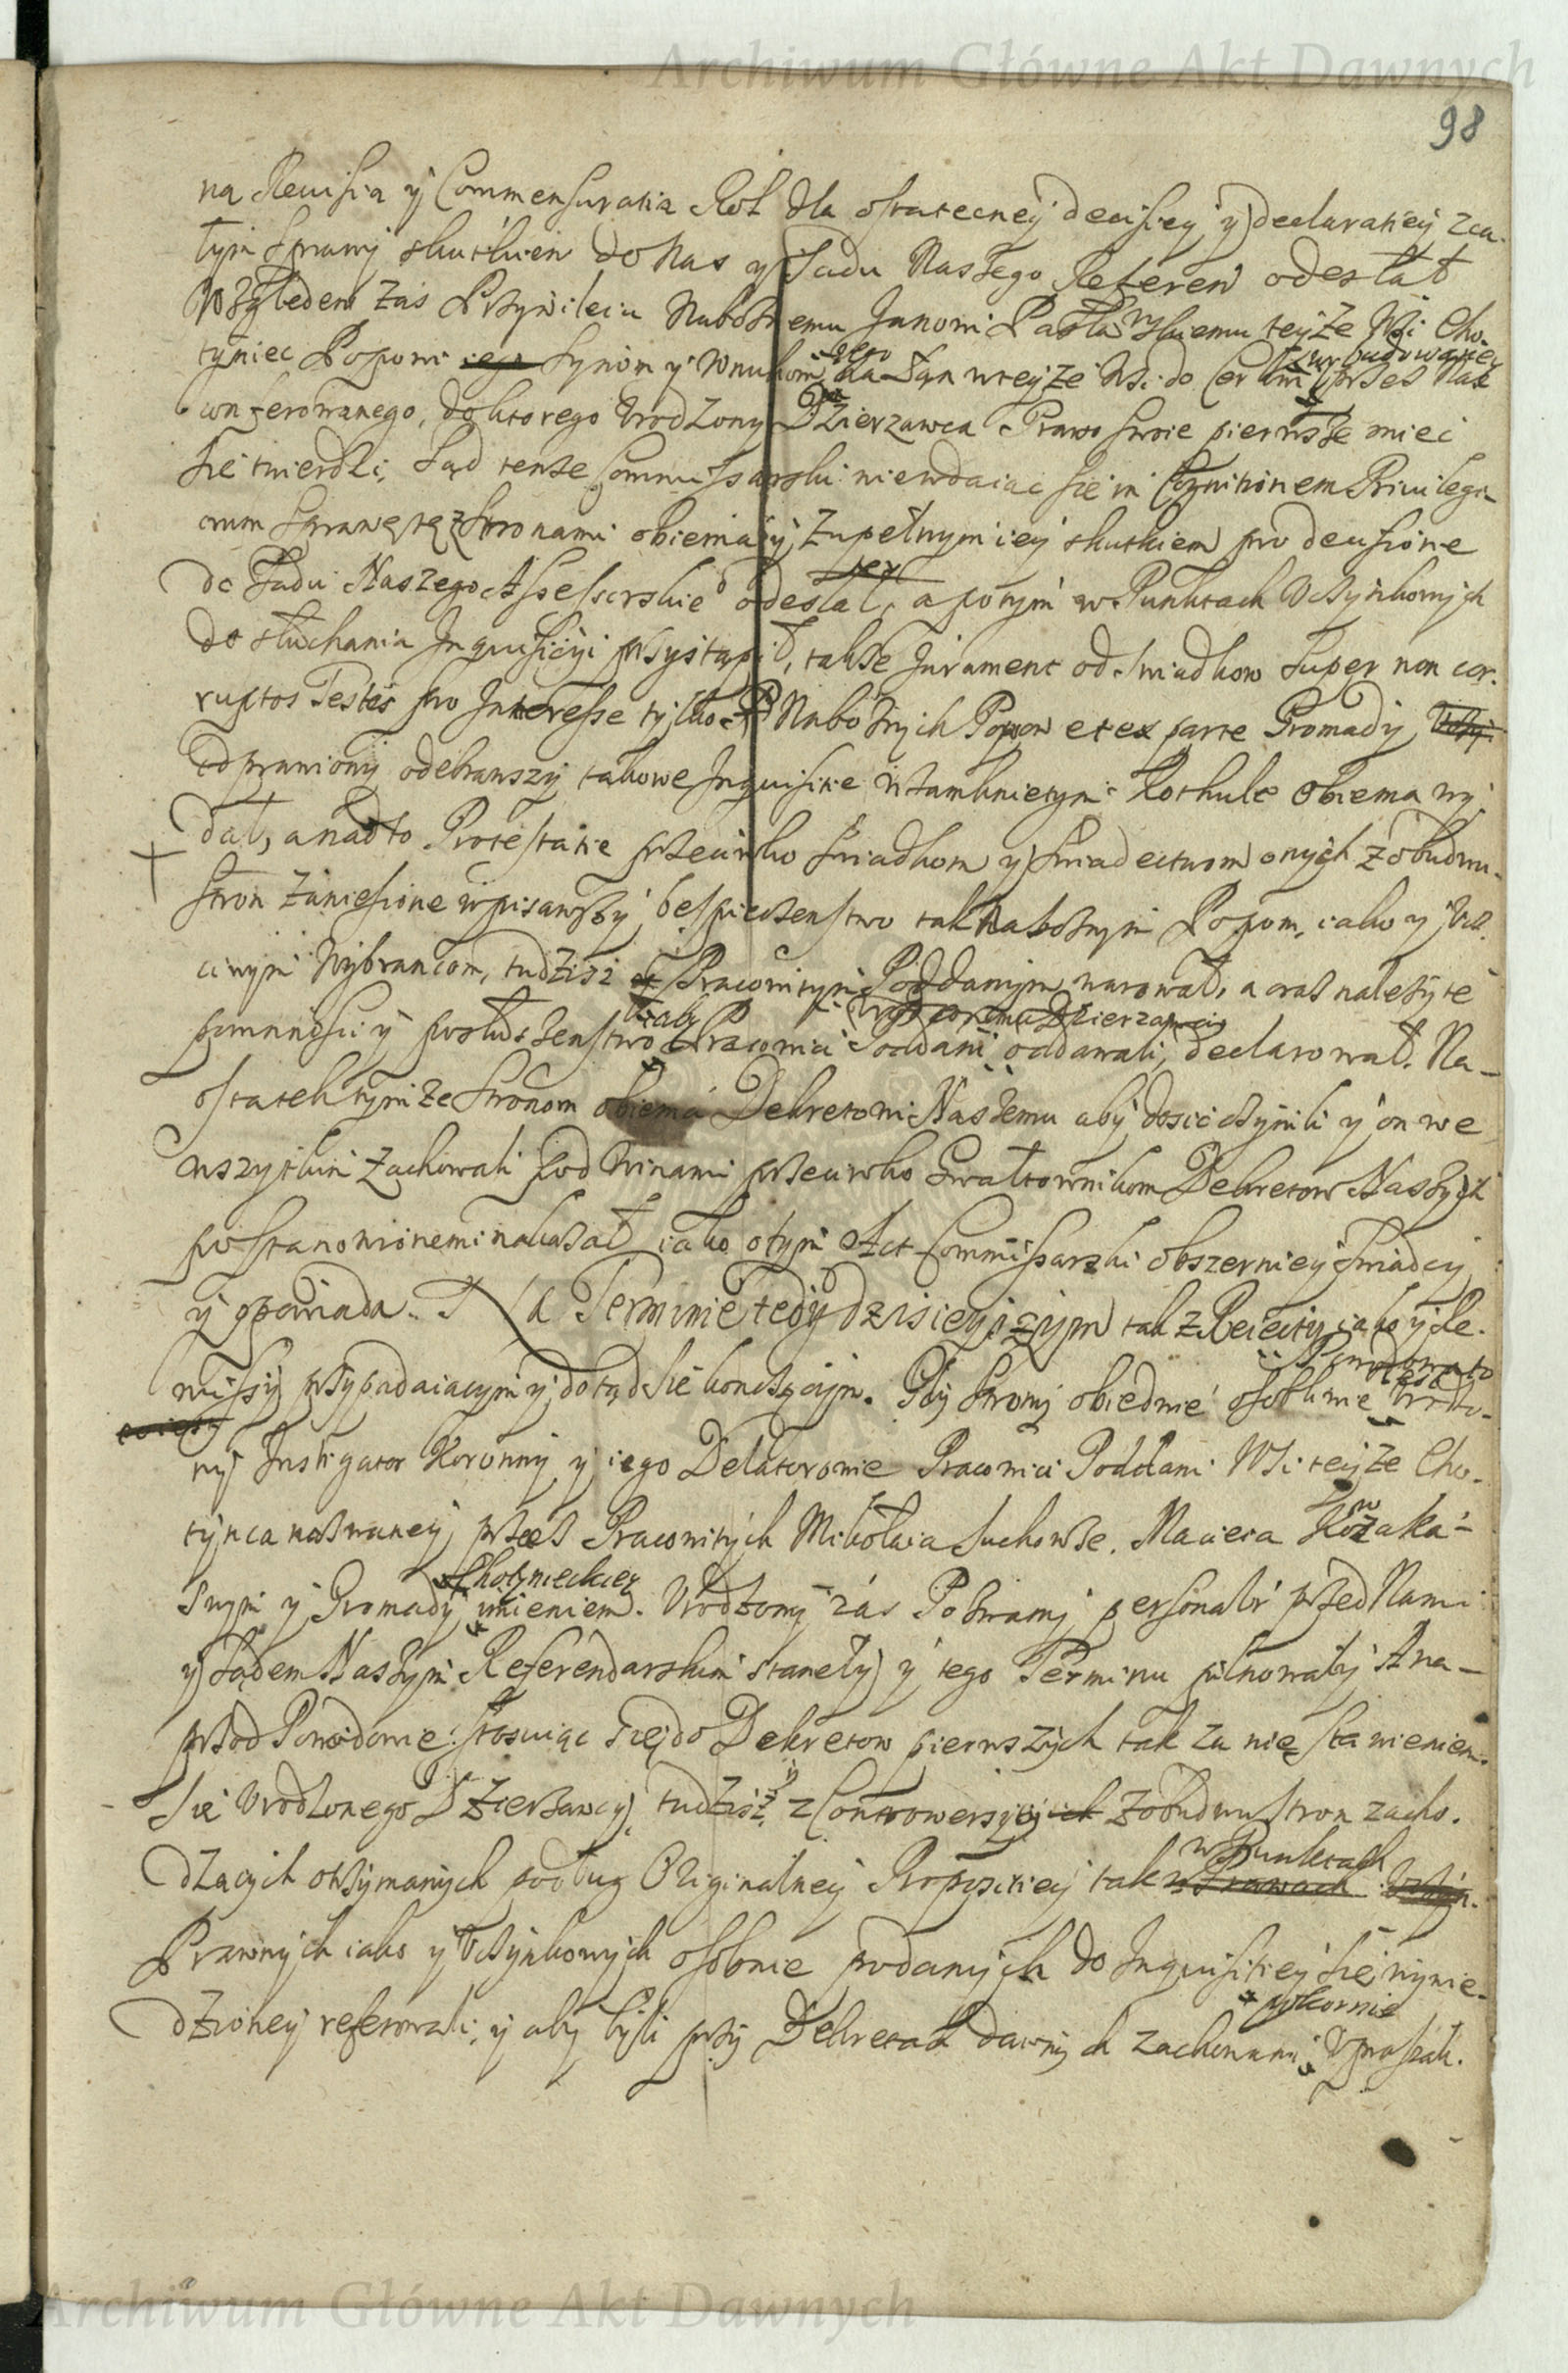 Archiwum Główne Akt Dawnych
98
na Rewisia y Commensuratia Rol dla ostatecney decisiey y declaratiey zca-
łym sprawy skutkiem do Nas y Sadu Naszego Referen odesłał
Względem zas Przywileiu Nabożnemu Janowi Pasławskiemu teyże Wsi Cho-
tyniec Popowi iego synom y wnukom iego na Łan wteyże Wsi do Cerkwi wybudowaney przez Nas
conferowanego, do ktorego Vrodzony Dzierzawca Prawo swoie pierwsze miec
się twierdzi, Sąd tenże Commissarski niewdaiac się in Cognitionem Privilegi-
orum sprawę tę z stronami obiema y zupełnym iey skutkiem pro decisione
do Sadu Naszego Assessorskie° odesłał, a potym w Punktach Vczynkowych
do słuchania Inquisicyi przystąpił, także Jurament od swiadkow super non cor-
ruptos Testes pro Interesse tylko Nabożnych Popow et ex parte Gromady
odprawiony odebrawszy takowe Inquisitie w zamknietym Rothule obiema wy-
dał, a nadto Protestatie przeciwko swiadkom y swiadectwom onych z obudwu
stron zaniesione wpisawszy, bespieczenstwo tak Nabożnym Popom, iako y
Wybrancom, tudzisz Pracowitym Poddanym warował, a oraz należyte
powinnosci y posłuszenstwo aby Pracowici Poddani Vrodzonemu Dzierzawcy oddawali, declarował. Na-
ostatek tymże stronom obiema Dekretowi Naszemu aby dosic czynili y on we
wszytkim zachowali pod winami przeciwko Gwałtownikom Dekretow Naszych
postanowionemi nakazał, iako o tym Act Commissarski obszerniey swiadczy
y opowiada. Na Terminie tedy dzisieyszym tak z Rei iako y Re-
missy przypadaiacym y dotąd się konczącym. Gdy strony obiedwie osobliwie Vrodzo-
ny Instigator Koronny y iego Delatorowie Pracowici Poddani Wsi teyże Cho-
tynca nazwaney, przez Pracowitych Mikołaia Suchowse. Macieia Kozaka
swym y Gromady Chotynieckiey imieniem. Vrodzony zas Pozwany personalr przed Nami
y Sądem Naszym Referendarskim stanęły y tego Terminu pilnowały A na-
przod Powodowie stosuiąc się do Dekretow pierwszych tak za nie stawieniem
się Vrodzonego Dzierzawcy, tudzisz y z Controwersyi z obudwu stron zacho-
dzacych otrzymanych podług Originalney Propositiey tak w Punktach
Prawnych iako y Vczynkowych osobnie podanych do Inquisitiey się wywie-
dzioney referowali, y aby byli przy Dekretach dawnych zachowani pokornie Vpraszali.
Archiwum Główne Akt Dawnych